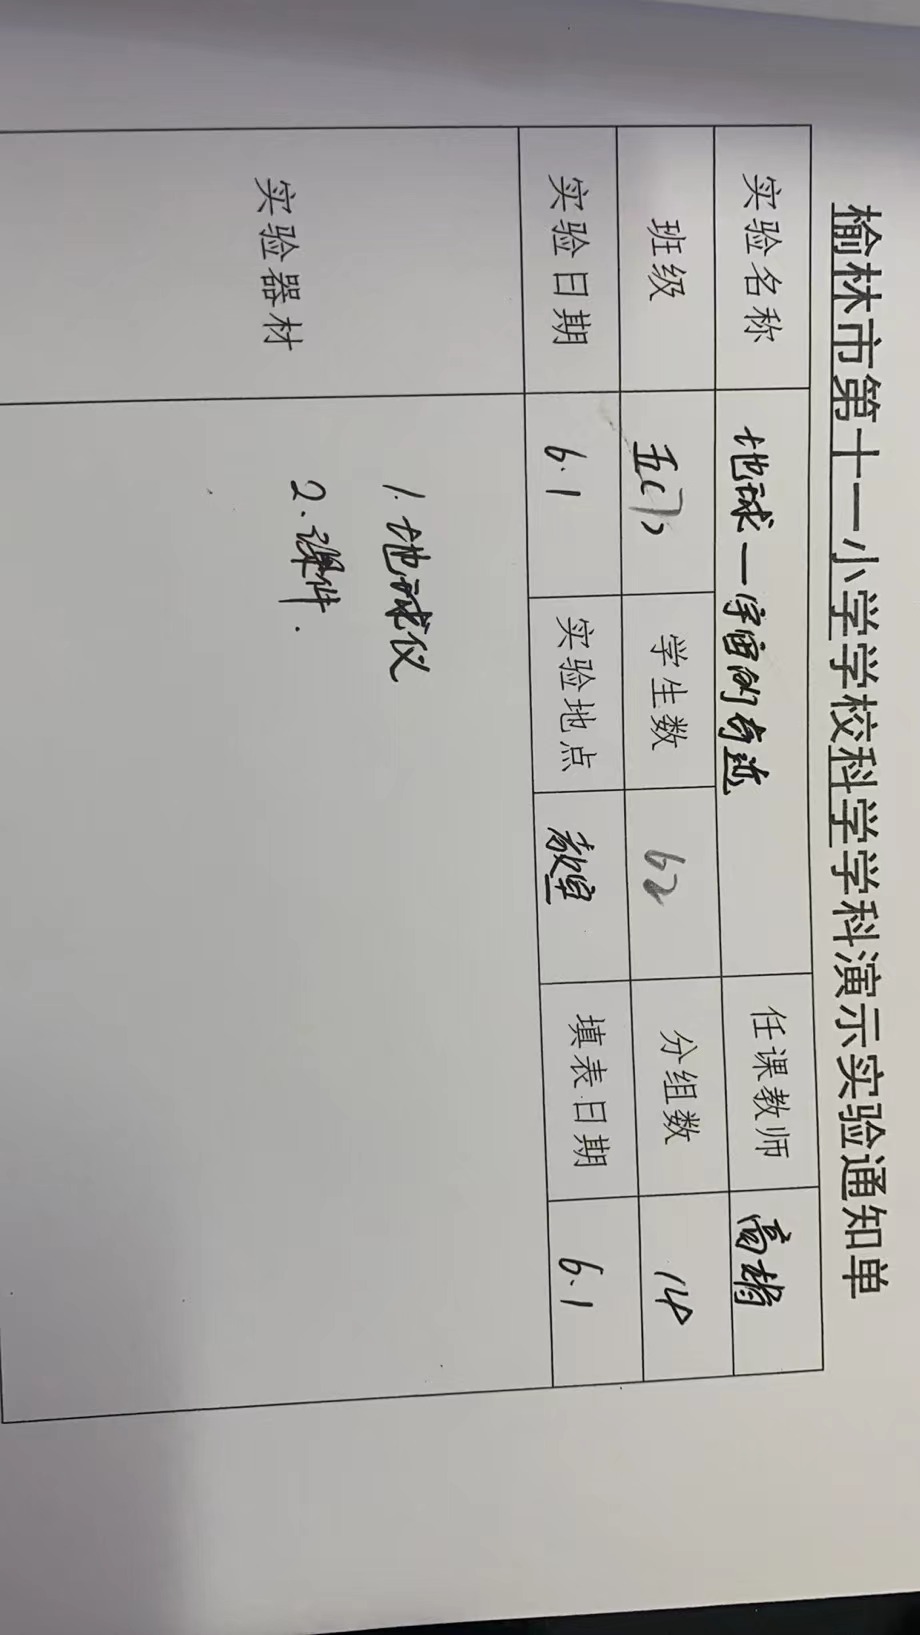 榆林市第十一小学学校科学学科演示实验通知单
实验名称 地球一宇宙的奇迹 任课教师 高婧
班级 五(7) 学生数 62 分组数 14
实验日期 6.1 实验地点 教室 填表日期 6.1
实验器材
1.地球仪
2.课件.